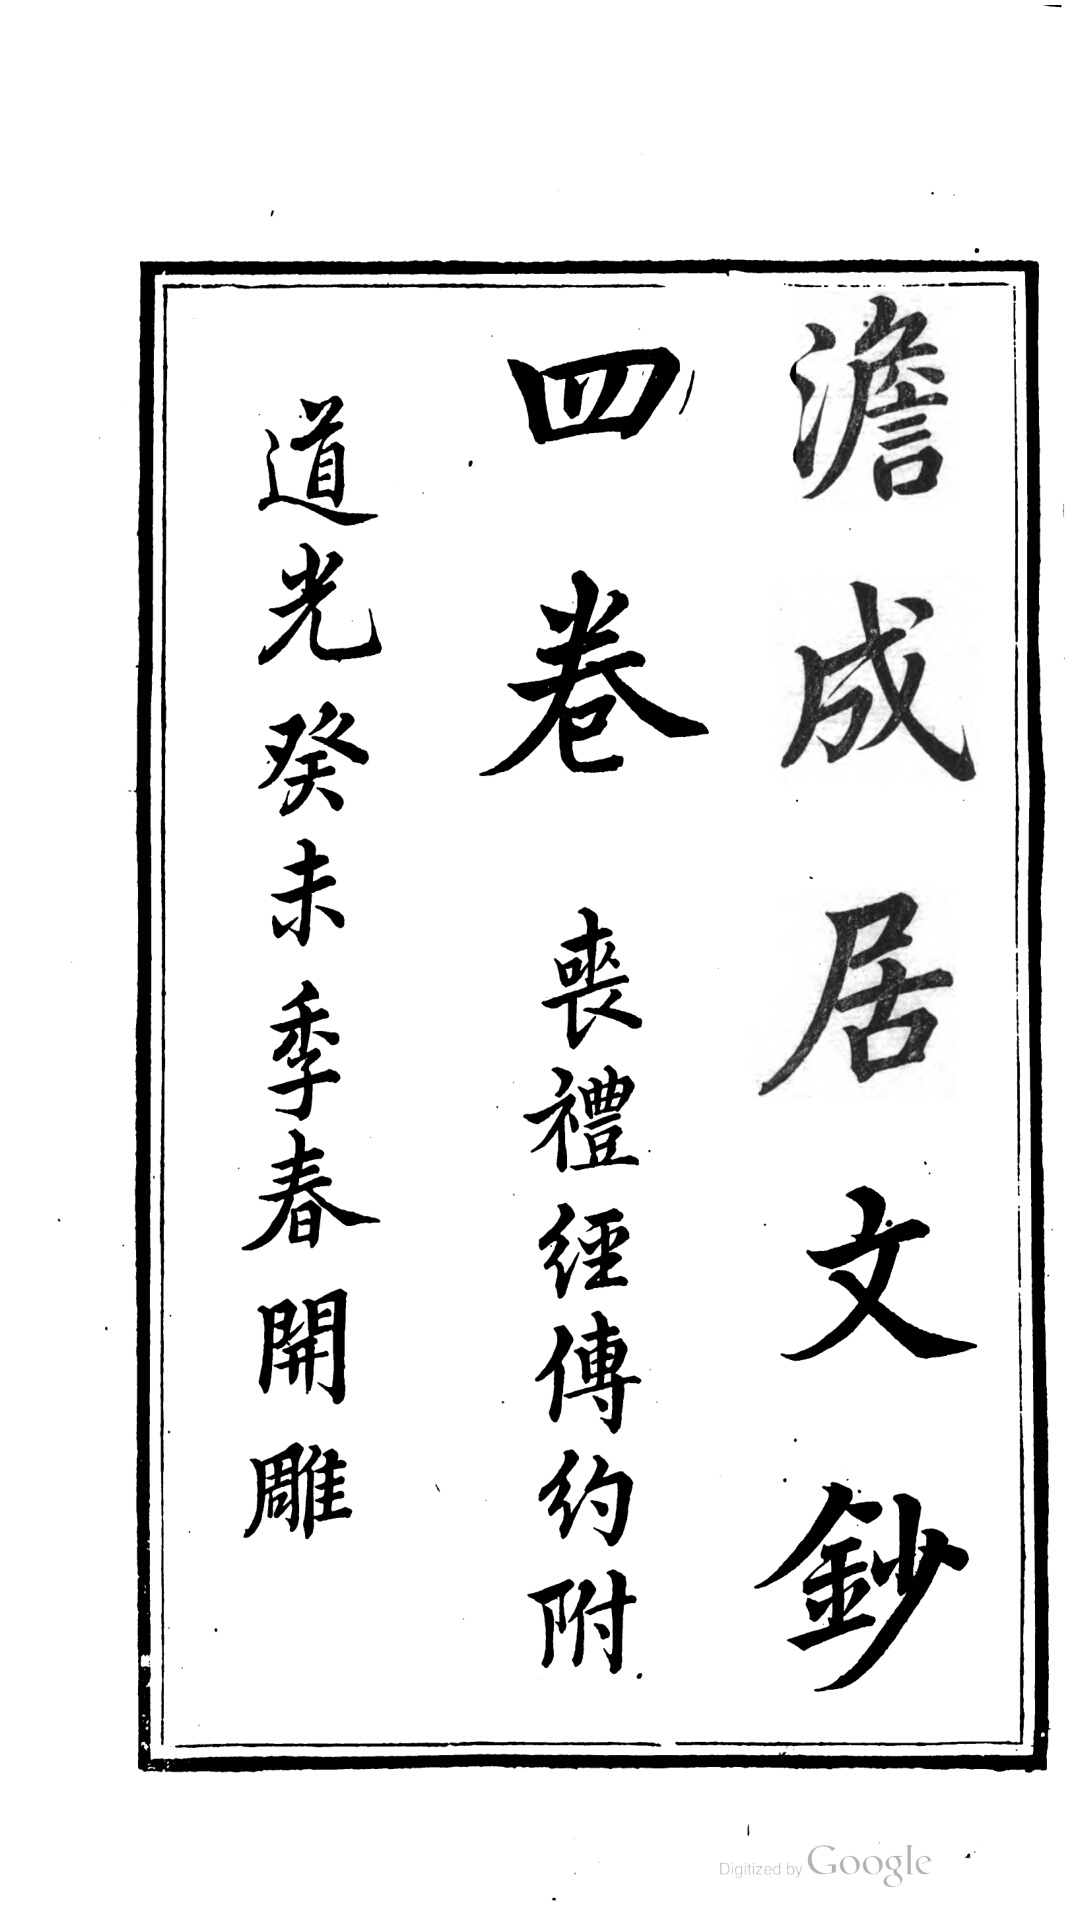 澹成居文鈔
四卷 喪禮經傳約附
道光癸未季春開雕
Digitized by Google